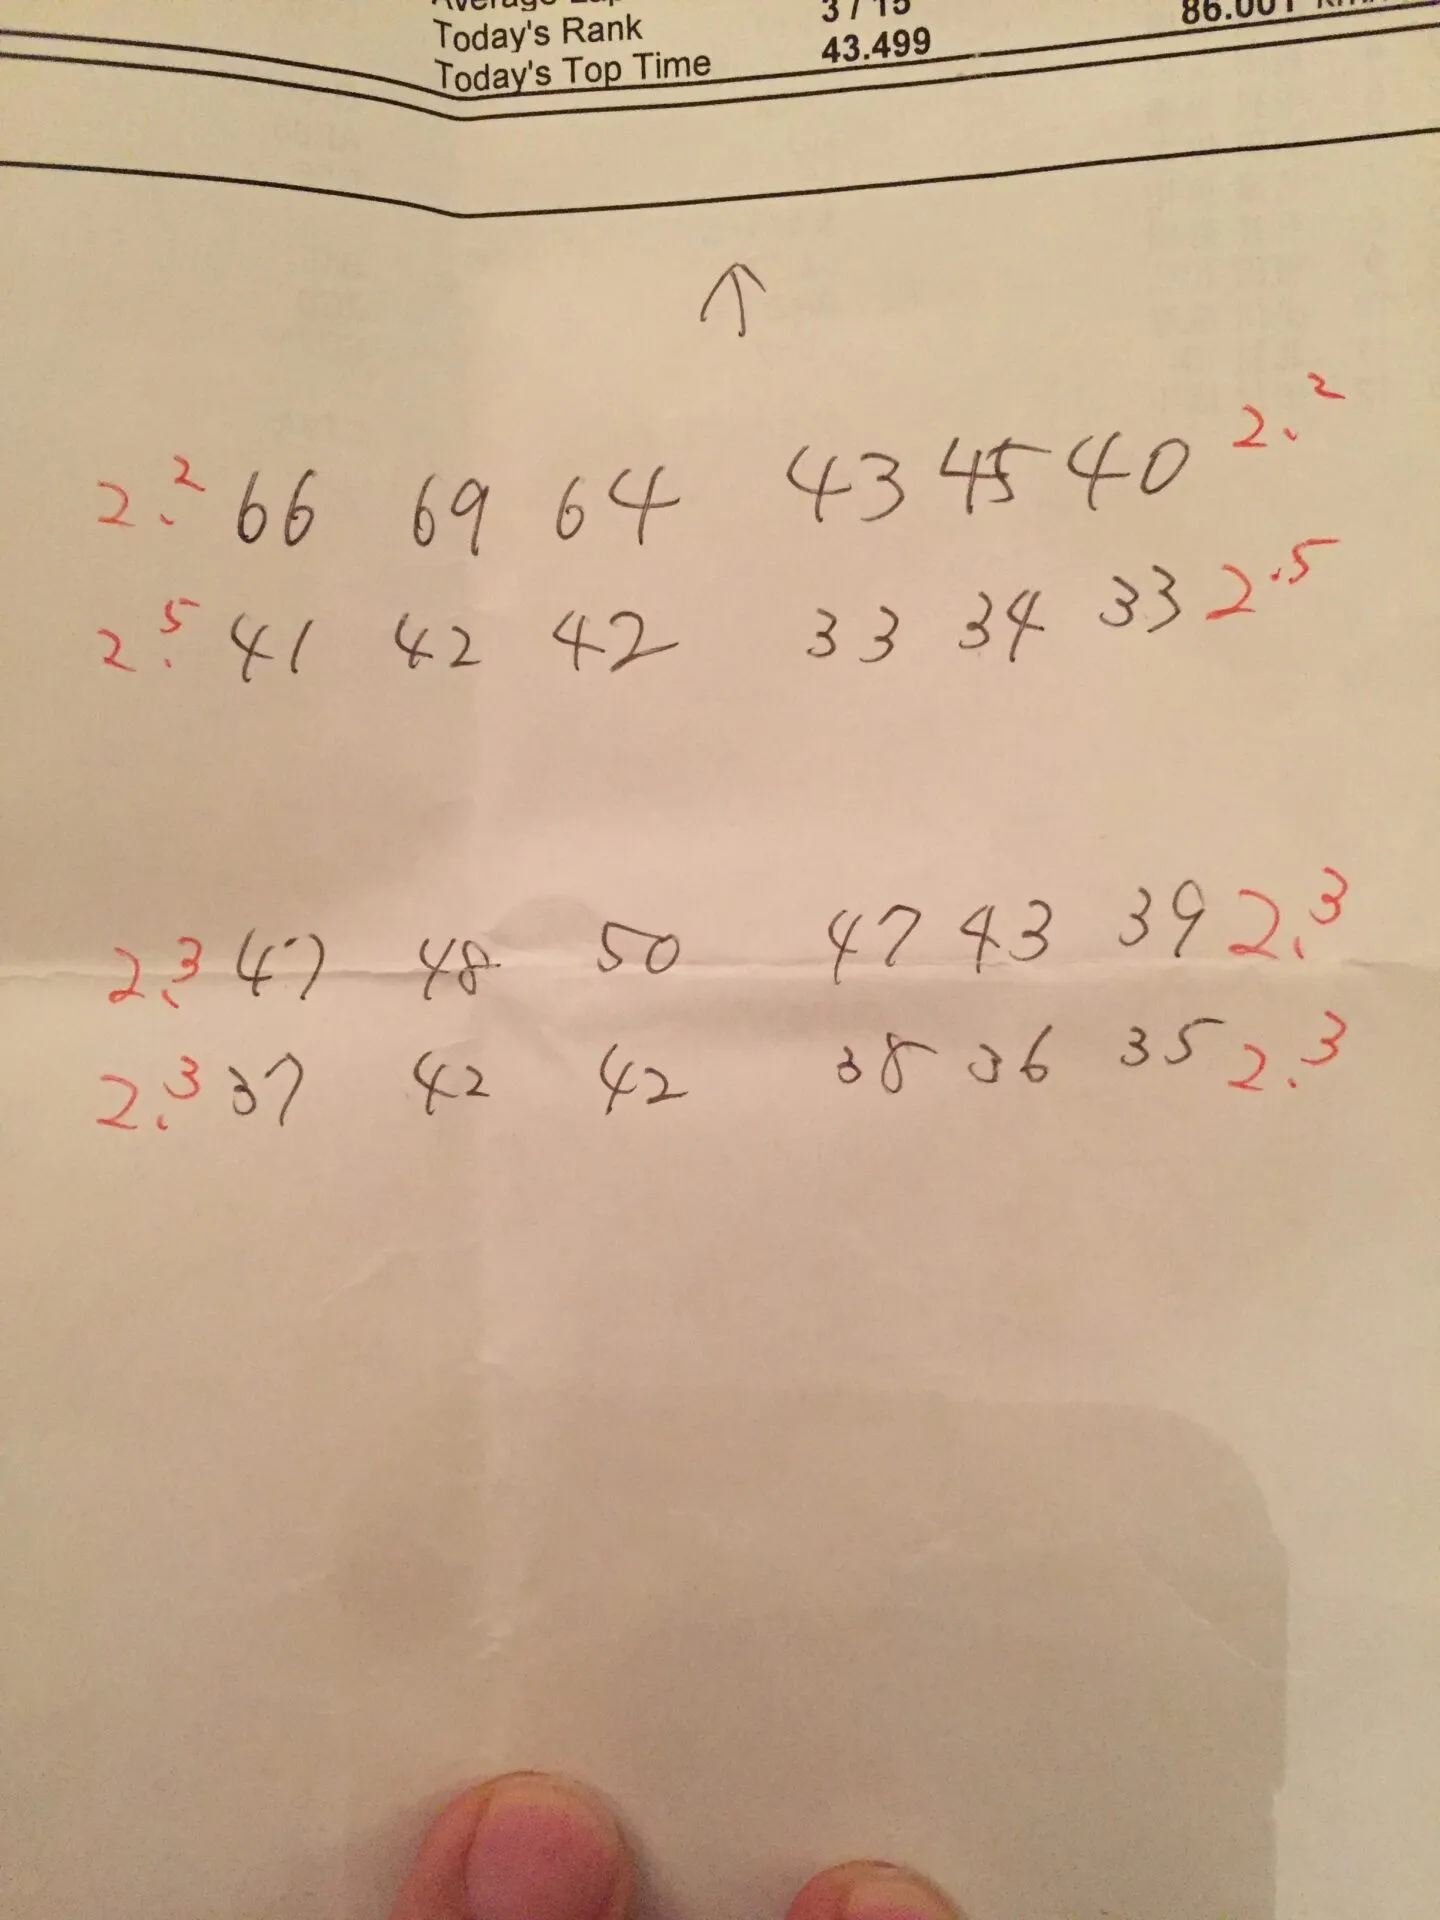 Average Lap
Today's Rank 3 / 15 86.001
Today's Top Time 43.499
↑
2.2 66 69 64 43 45 40 2.2
2.5 41 42 42 33 34 33 2.5
2.3 47 48 50 47 43 39 2.3
2.3 37 42 42 38 36 35 2.3